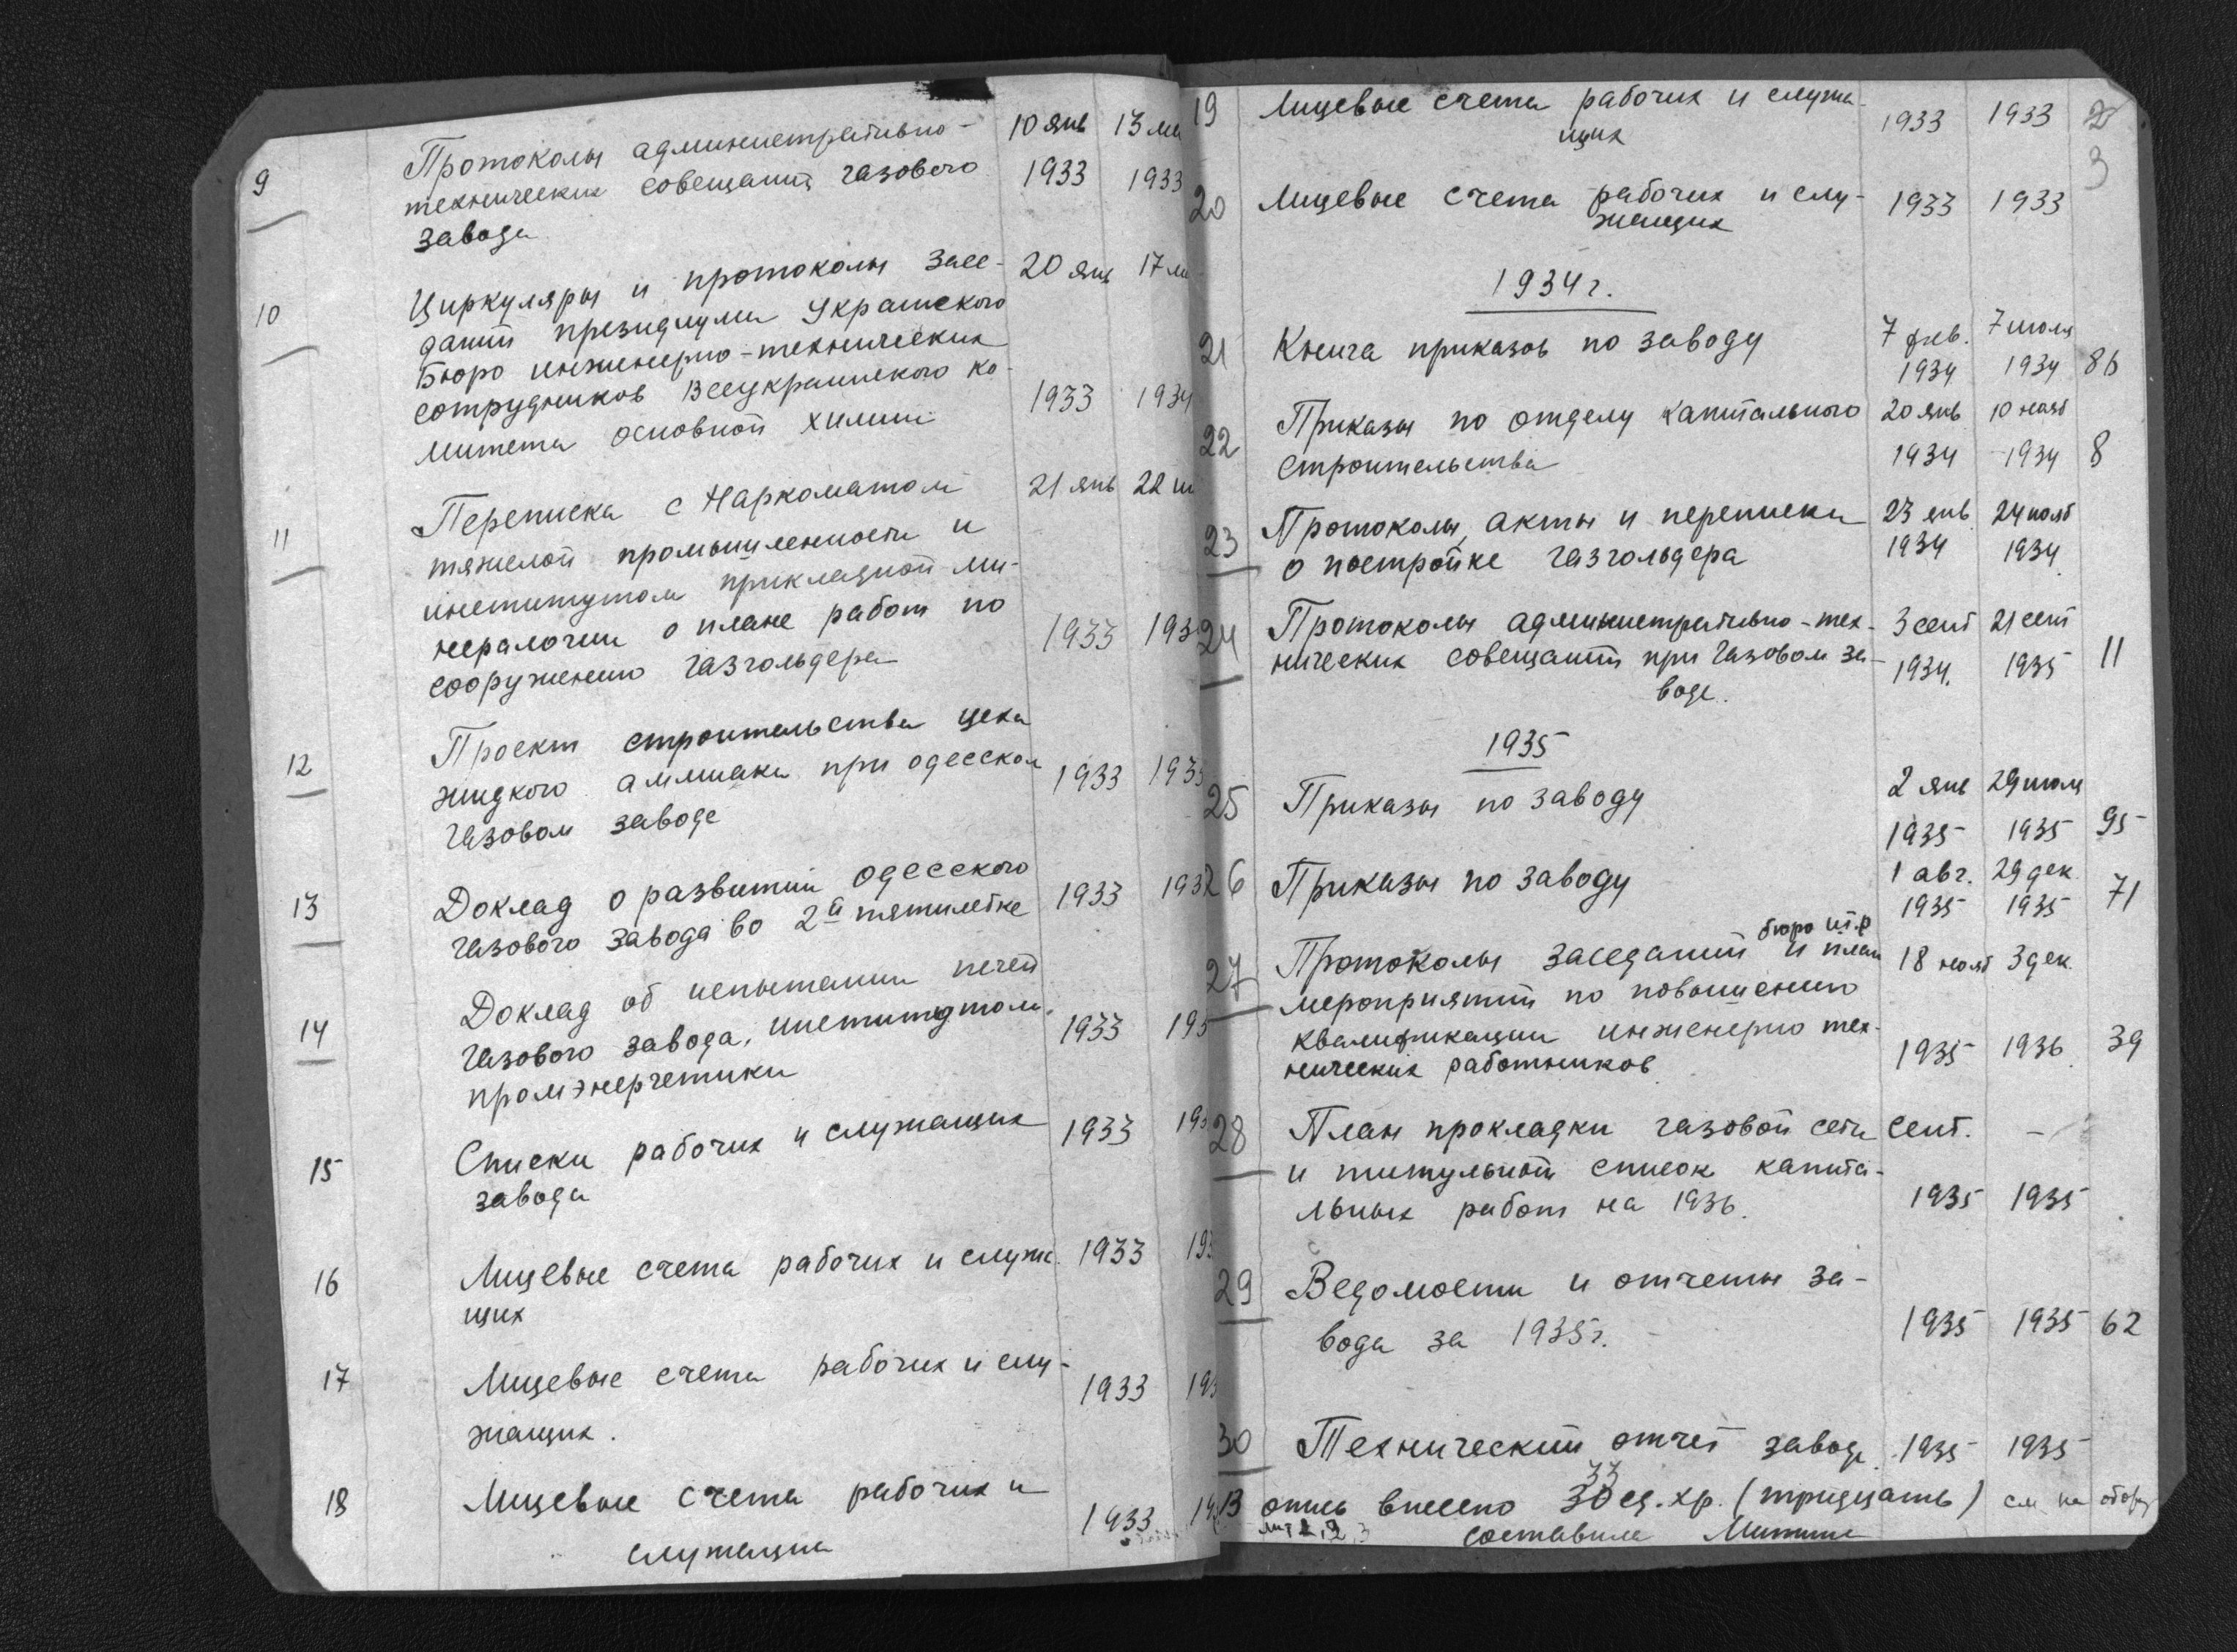 9 Протоколы административно- 10 янв 13
технических совещаний газового 1933 1933
завода
10 Циркуляры и протоколы засе- 20 янв 17
даний президиума Украинского
Бюро инженерно-технических
сотрудников Всеукраинского ко-
митета основной химии 1933 1934
11 Переписка с Наркоматом 21 янв 22
тяжелой промышленности и
институтом прикладной ми-
нералогии о плане работ по
сооружению газгольдера 1933 193
12 Проект строительства цеха
жидкого аммиака при одесском 1933 193
газовом заводе
13 Доклад о развитии одесского
газового завода во 2й пятилетке 1933 193
14 Доклад об испытании печей
газового завода, институтом 1933 193
промэнергетики
15 Списки рабочих и служащих 1933 193
завода
16 Лицевые счета рабочих и служа- 1933 193
щих
17 Лицевые счета рабочих и слу- 1933 193
жащих.
18 Лицевые счета рабочих и 1933
служащих
19 Лицевые счета рабочих и служа- 1933 1933
щих
3
20 Лицевые счета рабочих и слу- 1933 1933
жащих
1934 г.
21 Книга приказов по заводу 7 фев. 7 июля
1934 1934 86
22 Приказы по отделу капитального 20 янв 10 нояб
строительства 1934 1934 8
23 Протоколы, акты и переписка 23 янв 24 нояб
о постройке газгольдера 1934 1934
24 Протоколы административно-тех- 3 сент 21 сент
нических совещаний при газовом за- 1934 1935 11
воде.
1935
25 Приказы по заводу 2 янв 29 июля
1935 1935 95
26 Приказы по заводу 1 авг. 29 дек.
1935 1935 71
бюро ИТР
27 Протоколы заседаний и план 18 нояб 3 дек.
мероприятий по повышению
квалификации инженерно тех-
нических работников 1935 1936 39
28 План прокладки газовой сети сент. -
и титульный список капита-
льных работ на 1936. 1935 1935
29 Ведомости и отчеты за-
вода за 1935 г. 1935 1935 62
30 Технический отчет завода 1935 1935
33
В опись внесено 30 ед. хр. (тридцать) см на обор
составила